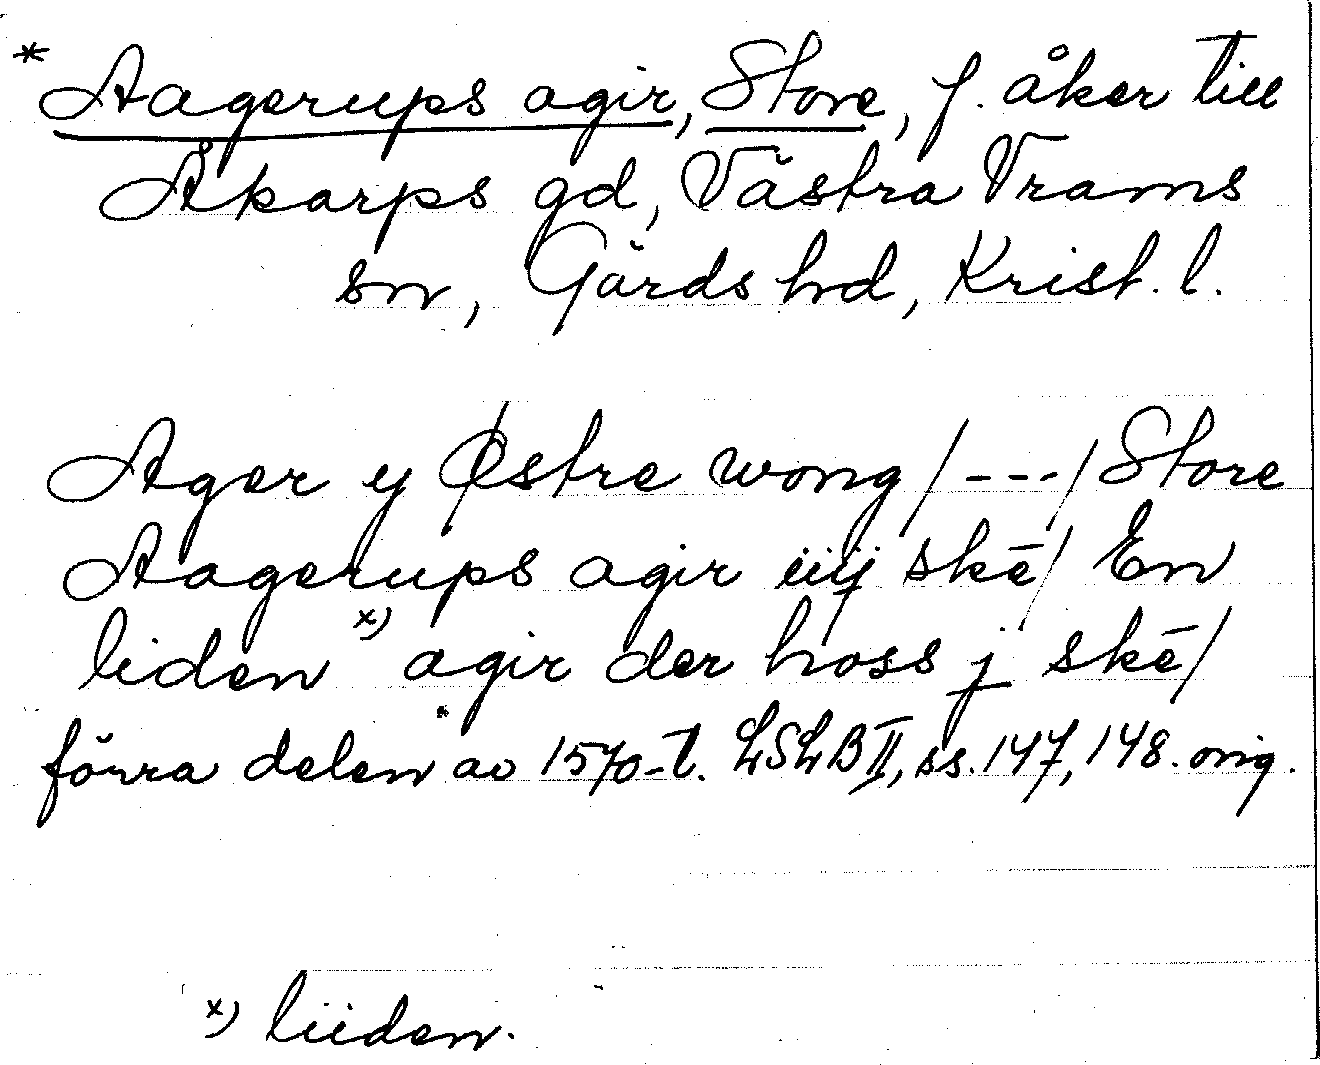 * Aagerups agir, Store, f. åker till
Åkarps gd, Västra Vrams
sn, Gärds hd, Krist. l.
Ager y Østre wong / --- / Store
Aagerups agir iiij skē / En
liden x) agir der hoss j skē /
förra delen av 1570-t. LSLB II, ss. 147, 148. orig.
x) liiden.